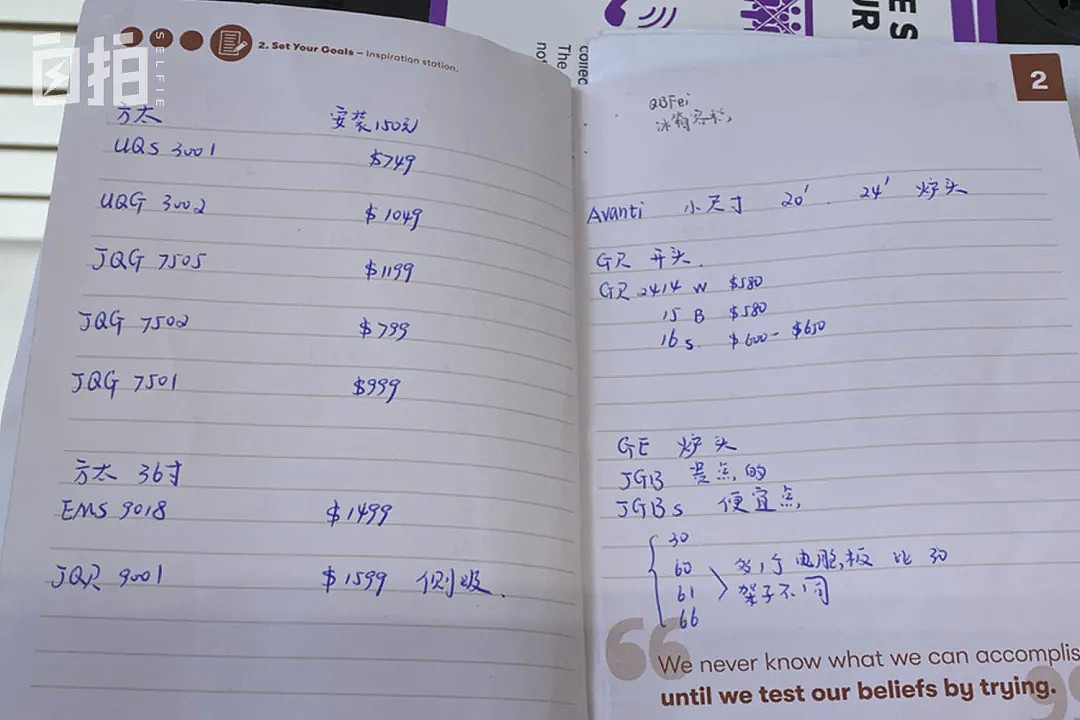 自拍
SELFIE
2. Set Your Goals – Inspiration station.
方太 安装150元
UQS 3001 $749
UQG 3002 $1049
JQG 7505 $1199
JQG 7502 $799
JQG 7501 $999
方太 36寸
EMS 9018 $1499
JQR 9001 $1599 侧吸.
collec
The
not
ES
UR
2
QBFei
冰箱容积,
Avanti 小尺寸 20' . 24' 炉头
GR 开头.
GR 2414 W $580
15 B $580
16 S. $600 - $650
GE 炉头
JGB 贵点的
JGBS 便宜点
30
60 多1个电脑板 比 30
61 架子不同
66
We never know what we can accomplis
until we test our beliefs by trying.